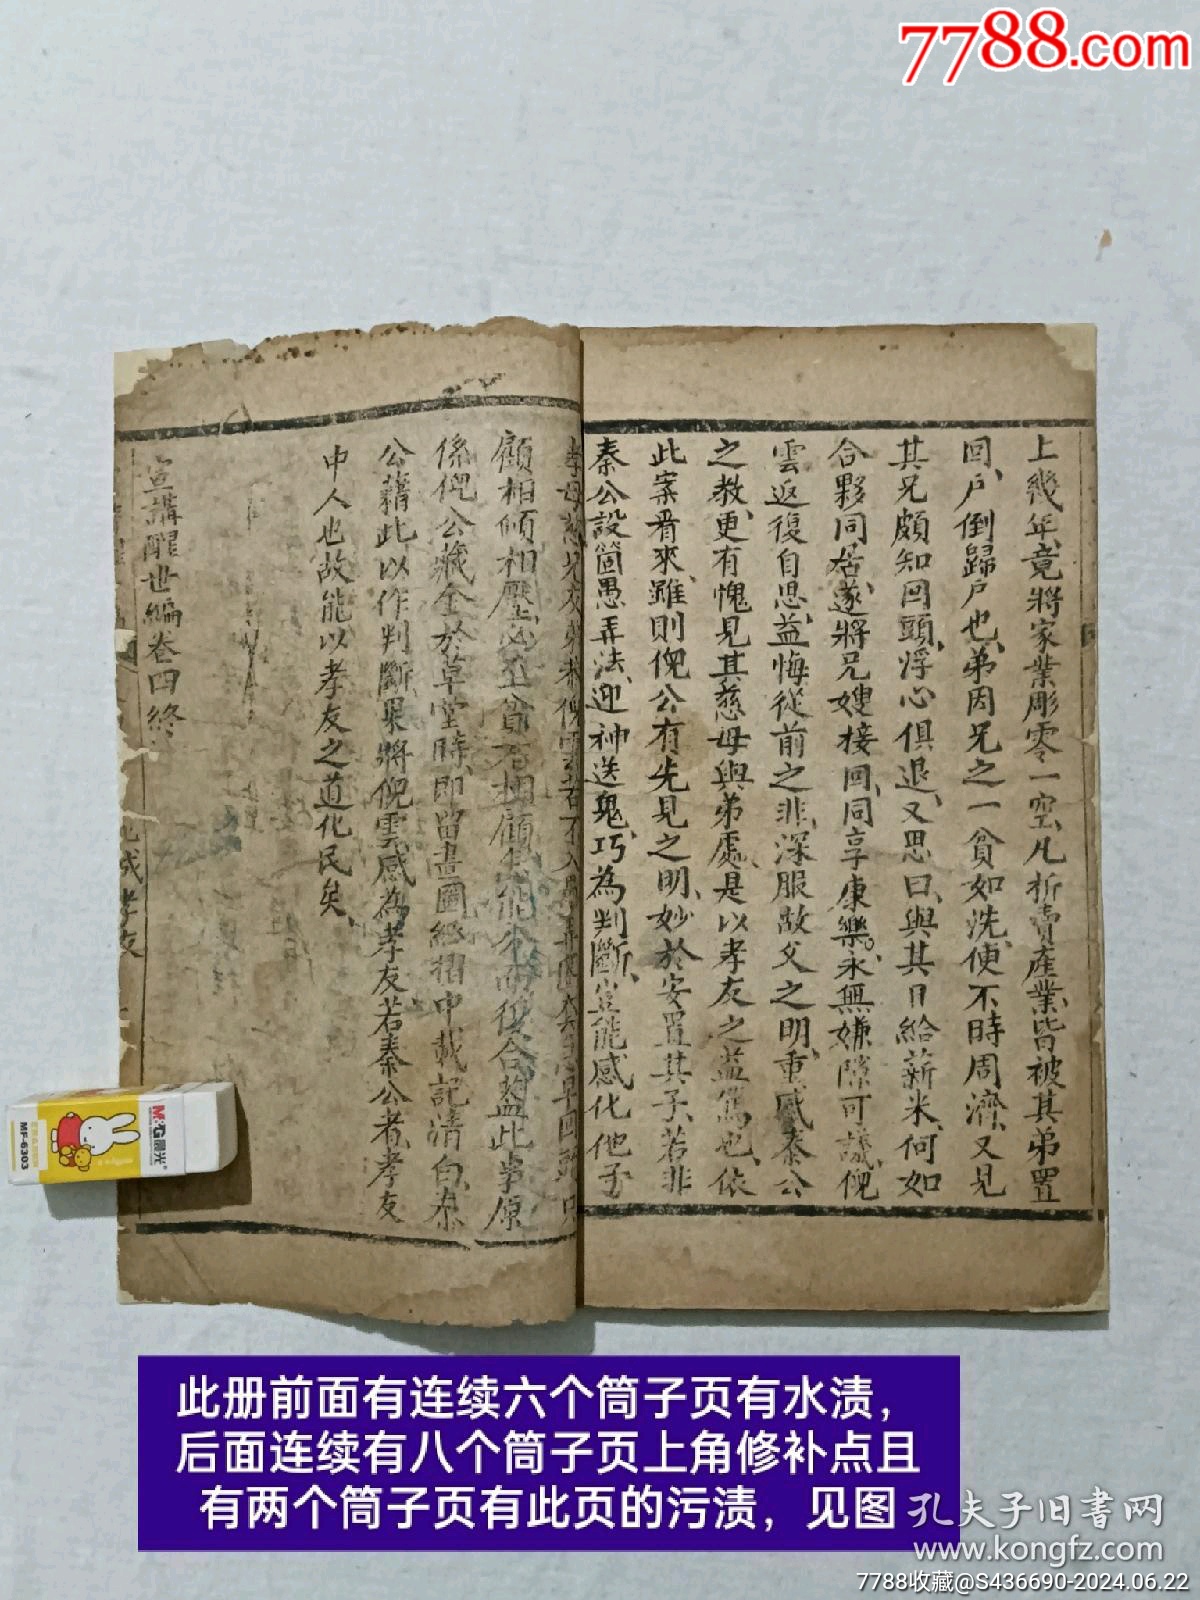 7788.com
上幾年竟將家業彫零一空凡折賣產業皆被其弟置
回戶倒歸戶也弟因兄之一貧如洗便不時周濟又見
其兄頗知回頭浮心俱退又思曰與其日給薪米何如
合夥同居遂將兄嫂接回同享康樂永無嫌隙可議倪
雲返復自思益悔從前之非深服故父之明重感秦公
之教更有愧見其慈母與弟處是以孝友之益篤也依
此案看來雖則倪公有先見之明妙於安置其子若非
秦公設箇愚弄法迎神送鬼巧為判斷豈能感化他子
顧相傾相壓
係倪公藏金於草堂時即留畫圖經摺中載記清白秦
公藉此以作判斷果將倪雲感為孝友若秦公者孝友
中人也故能以孝友之道化民矣
宣講醒世編卷四終
城孝友
M&G晨光
MF-6303
此册前面有连续六个筒子页有水渍，
后面连续有八个筒子页上角修补点且
有两个筒子页有此页的污渍，见图
孔夫子旧书网
www.kongfz.com
7788收藏@S436690-2024.06.22